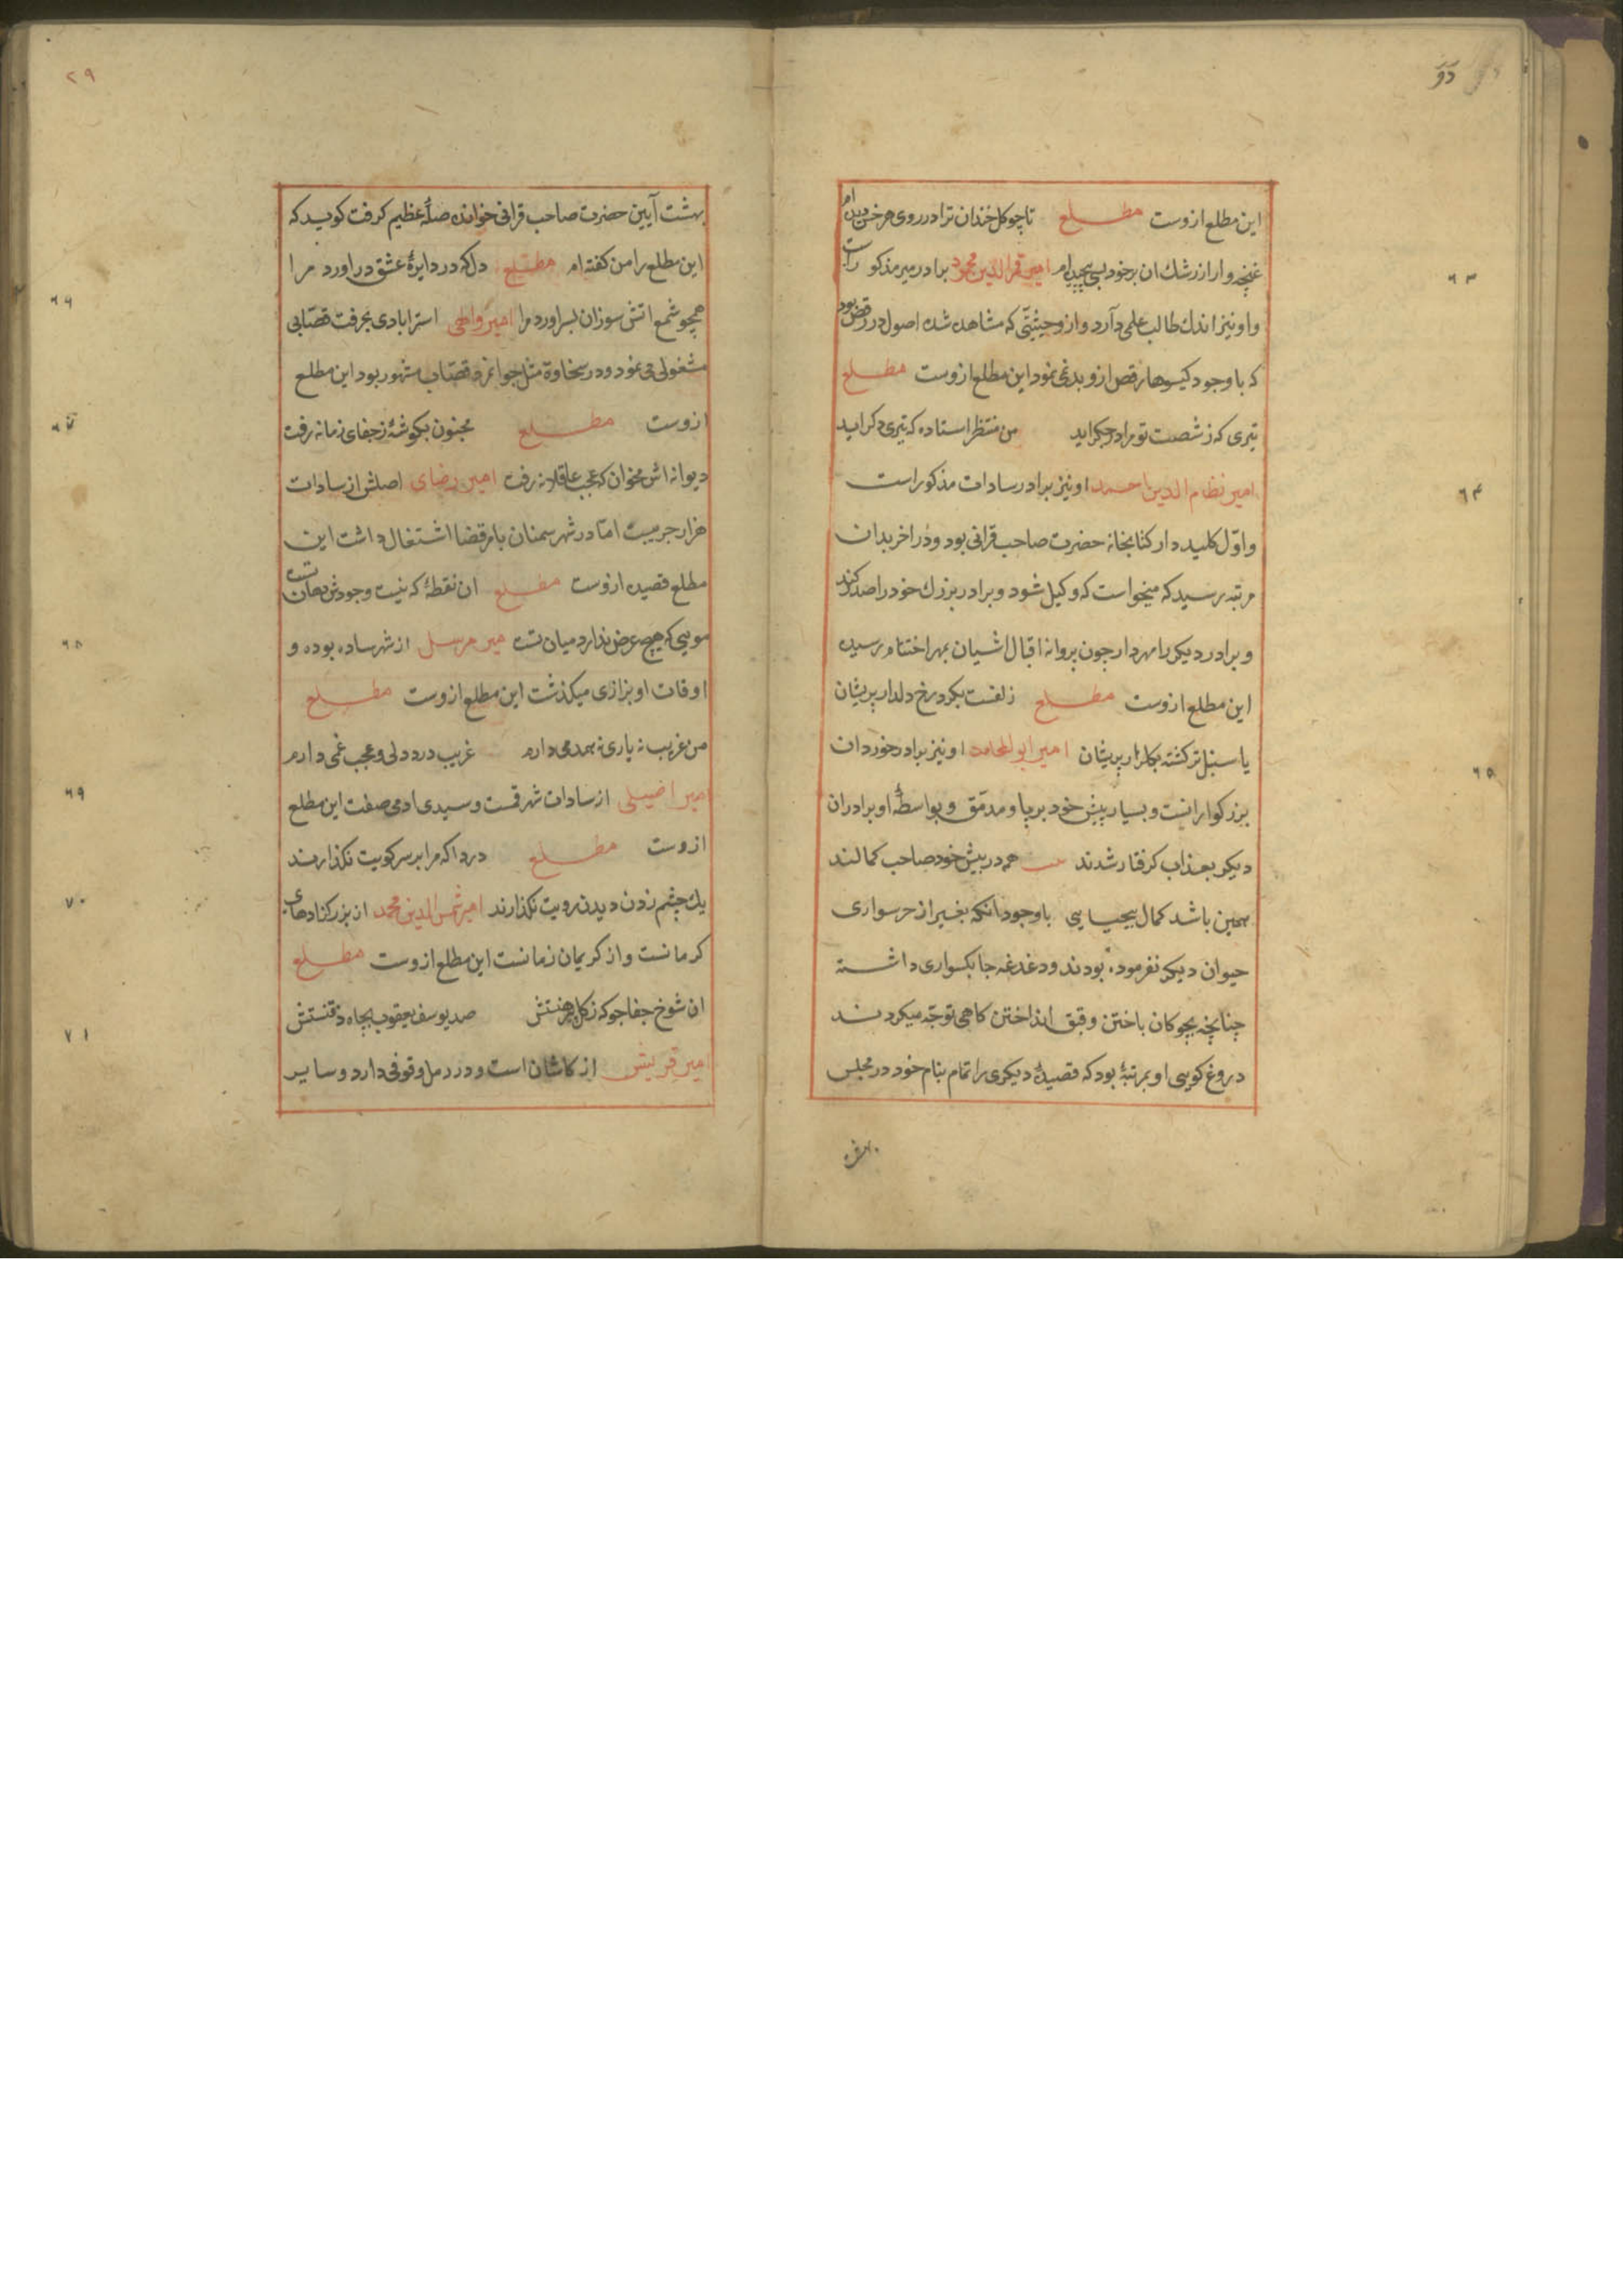 این مطلع ازوست مطلع تا چو کل خندان ترا در روی هر خس دیده ام
غنچه وار از رشک ان بر خود بسی پیچیده ام امیر قمر الدین محمود برادر میر مذکور است
واو نیز اندك طالب علمی دآرد واز وحیثیّتی که مشاهده شده اصول در رقص بود
که با وجود کیسوها رقص ازو بد نمی نمود این مطلع ازوست مطلع
تیری که ز شصت تو مرا در جکر اید من منتظر استاده که تیری دکر اید
امیر نظام الدین احمد او نیز برادر سادات مذکور است
واوّل کلید دار کتابخانه حضرت صاحب قرانی بود ودر اخر بدان
مرتبه رسید که میخواست که وکیل شود وبرادر بزرك خود را صدر کند
وبرادر دیکر را مهردار چون پروانه اقبال اشیان بمهر اختتام رسیده
این مطلع ازوست مطلع زلفت بکرد رخ دلدار پریشان
یا سنبل تر کشته بکلزار پریشان امیر ابو المحامد او نیز برادر خورد ان
بزرکوارانست وبسیار پیش خود برپا ومدمّق وبواسطهٔ او برادران
دیکر بعذاب کرفتار شدند همه در پیش خود صاحب کمالند
همین باشد کمال بیحیایی باوجود انکه بغیر از خر سواری
حیوان دیکر نفرموده بودند ودغدغه چابکسواری داشته
چنانچه بچوکان باختن وقبق انداختن کاهی توجّه میکردند
دروغ کویی او بمرتبهٔ بود که قصیدهٔ دیکری را تمام بنام خود در مجلس
بهشت
۲۹
بهشت آیین حضرت صاحب قرانی خوانده صلهٔ عظیم کرفت کوید که
این مطلع را من کفته ام مطلع دل که در دایرهٔ عشق دراورد مرا
همچو شمع اتش سوزان بسر اورد مرا امیر واطی استرابادی بحرفت قصّابی
مشغولی می نمود ودر سخاوة مثل جوانمرد قصّاب مشهور بود این مطلع
ازوست مطلع مجنون بکوشهٔ ز جفای زمانه رفت
دیوانه اش مخوان که عجب عاقلانه رفت امیر رضای اصلش از سادات
هزار جریبست امّا در شهر سمنان بامر قضا اشتغال داشت این
مطلع قصیده ازوست مطلع ان نقطهٔ که نیست وجودش دهان تست
مویی که هیچ عرض ندارد میان تست میر مرسل از شهر ساده بوده و
اوقات او بزازی میکذشت این مطلع ازوست مطلع
من غریب نه یاری نه همدمی دارم غریب درد دلی وعجب غمی دارم
امیر اصیلی از سادات شهر قمست وسیدی ادمی صفت این مطلع
ازوست مطلع دردا که مرا بر سر کویت نکذارند
یك چشم زدن دیدن رویت نکذارند امیر شمس الدین محمد از بزرکزادهای
کرمانست واز کریمان زمانست این مطلع ازوست مطلع
ان شوخ جفاجو که ز کل پیرهنستش صد یوسف یعقوب بچاه ذقنستش
امیر قریش از کاشان است ودر رمل وقوفی دارد وسایر
۶۳
۶۴
۶۵
۶۶
۶۷
۶۸
۶۹
۷۰
۷۱